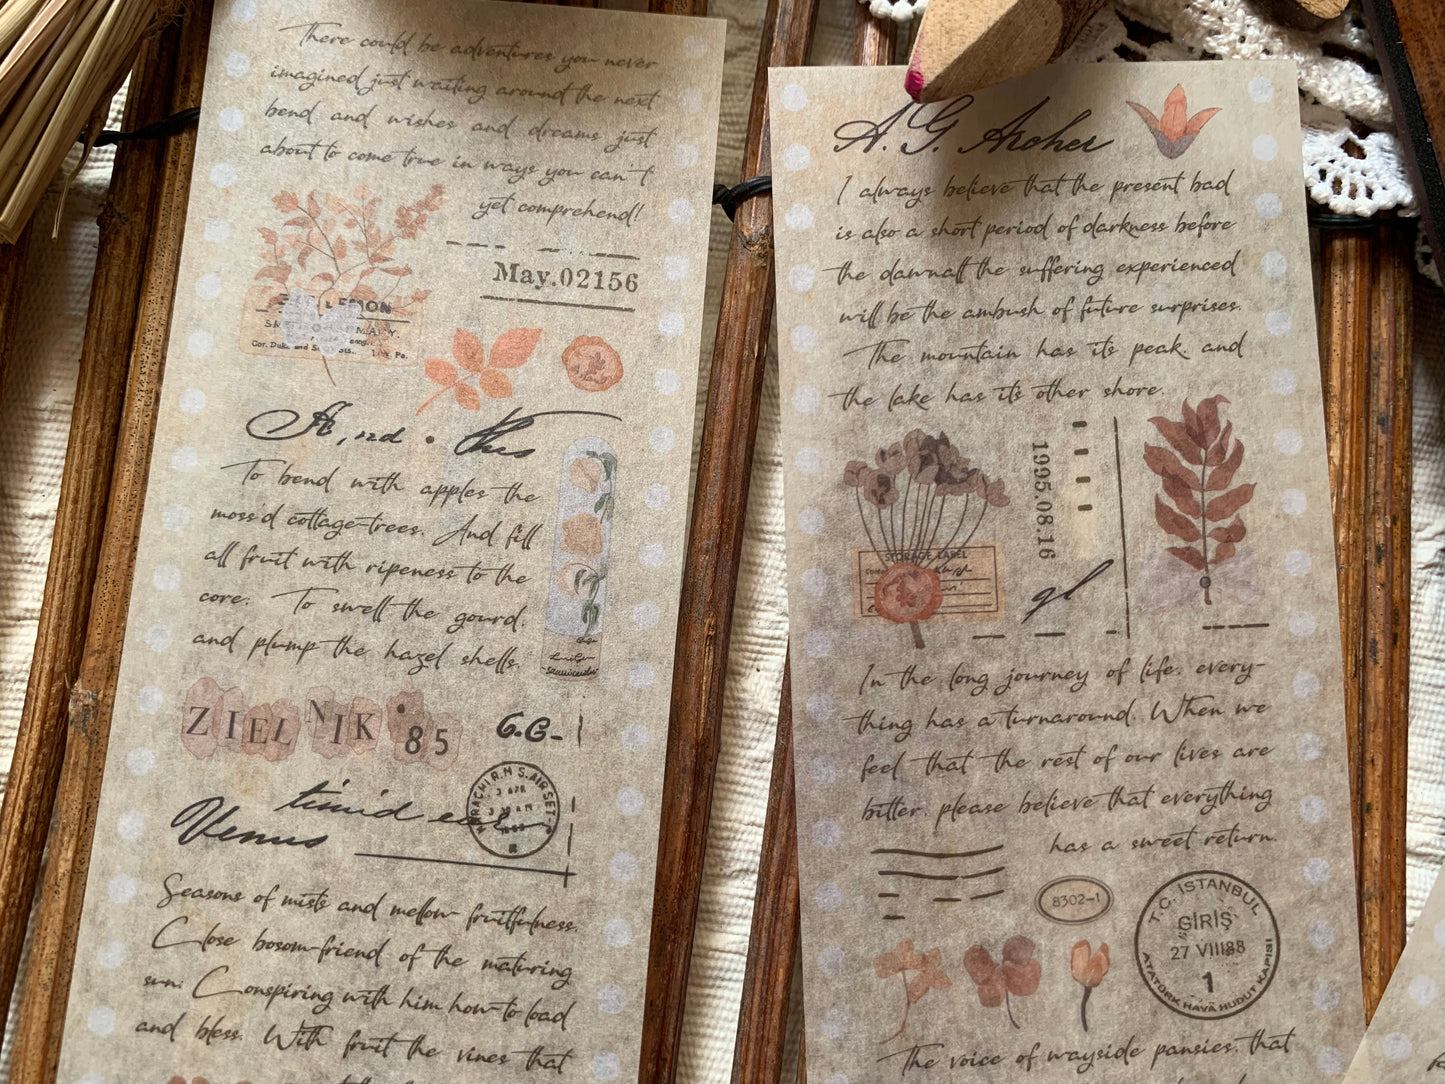 There could be adventures you never
imagined just waiting around the next
bend and wishes and dreams just
about to come true in ways you can't
yet comprehend!
May.02156
LEMON
Cor. Duke and Sts. Pa.
A,nd • this
To bend with apples the
moss'd cottage-trees. And fill
all fruit with ripeness to the
core. To swell the gourd.
and plump the hazel shells.
ZIELNIK • 85
G.G-
timid
Venus
KARACHI R.M.S. AIR SET.
3 APR
Seasons of mists and mellow fruitfulness.
Close bosom-friend of the maturing
sun; Conspiring with him how to load
and bless. With fruit the vines that
A. G. Archer
I always believe that the present bad
is also a short period of darkness before
the dawnaff the suffering experienced
will be the ambush of future surprises.
The mountain has its peak. and
the lake has its other shore.
1995.08.16
STORAGE LABEL
gl
In the long journey of life. every-
thing has a turnaround. When we
feel that the rest of our lives are
bitter. please believe that everything
has a sweet return.
8302-1
T.C. İSTANBUL
GİRİŞ
27 VIII88
1
ATATÜRK HAVA HUDUT KAPISI
The voice of wayside pansies. that